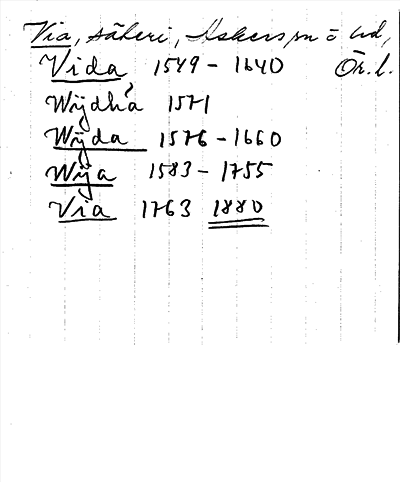 Via, säteri, Askers sn o hd,
Vida 1549 – 1640 Ör. l.
Wÿdhá 1571
Wÿda 1576 – 1660
Wÿa 1583 – 1755
Via 1763 1880